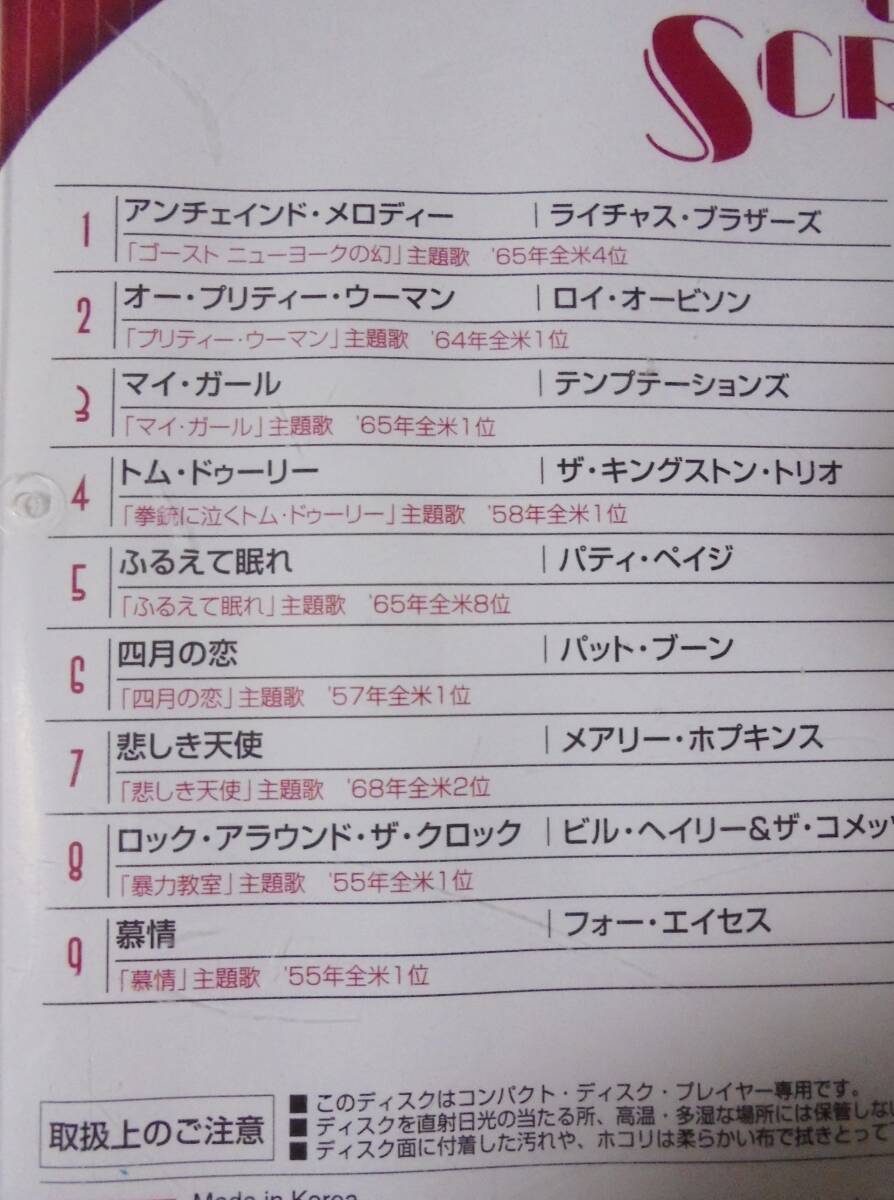 SCR
1 アンチェインド・メロディー | ライチャス・ブラザーズ
「ゴースト ニューヨークの幻」主題歌 '65年全米4位
2 オー・プリティー・ウーマン | ロイ・オービソン
「プリティー・ウーマン」主題歌 '64年全米1位
3 マイ・ガール | テンプテーションズ
「マイ・ガール」主題歌 '65年全米1位
4 トム・ドゥーリー | ザ・キングストン・トリオ
「拳銃に泣くトム・ドゥーリー」主題歌 '58年全米1位
5 ふるえて眠れ | パティ・ペイジ
「ふるえて眠れ」主題歌 '65年全米8位
6 四月の恋 | パット・ブーン
「四月の恋」主題歌 '57年全米1位
7 悲しき天使 | メアリー・ホプキンス
「悲しき天使」主題歌 '68年全米2位
8 ロック・アラウンド・ザ・クロック | ビル・ヘイリー&ザ・コメッツ
「暴力教室」主題歌 '55年全米1位
9 慕情 | フォー・エイセス
「慕情」主題歌 '55年全米1位
取扱上のご注意
■ このディスクはコンパクト・ディスク・プレイヤー専用です。
■ ディスクを直射日光の当たる所、高温・多湿な場所には保管しない
■ ディスク面に付着した汚れや、ホコリは柔らかい布で拭きとって
Made in Korea